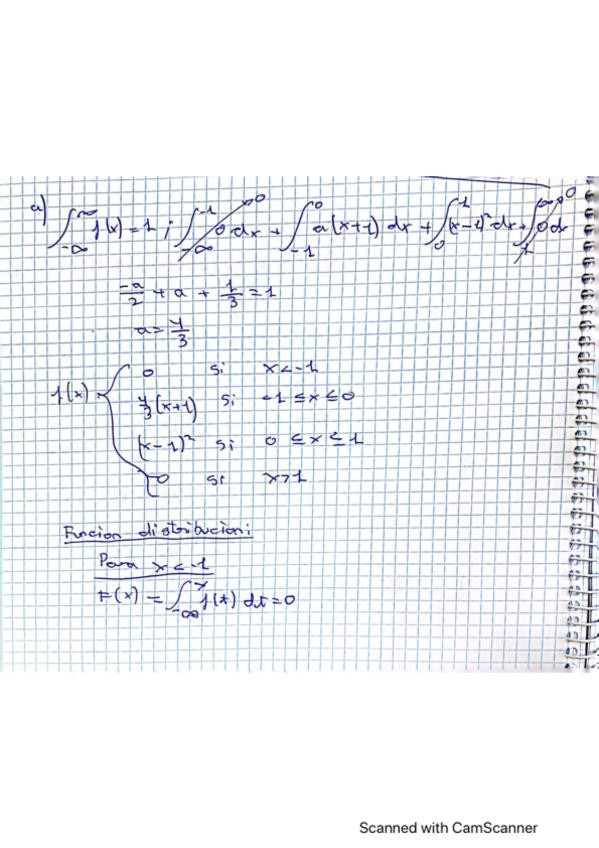 a) ∫_{-∞}^{∞} f(x) = 1 ; ∫_{-∞}^{-1} 0 dx →0 + ∫_{-1}^{0} a(x+1) dx + ∫_{0}^{1} (x-1)² dx + ∫_{1}^{∞} 0 dx →0
-a/2 + a + 1/3 = 1
a = 4/3
f(x) { 0 si x < -1
4/3 (x+1) si -1 ≤ x ≤ 0
(x-1)² si 0 ≤ x ≤ 1
0 si x > 1
Funcion distribucion:
Para x < -1
F(x) = ∫_{-∞}^{x} f(t) dt = 0
Scanned with CamScanner